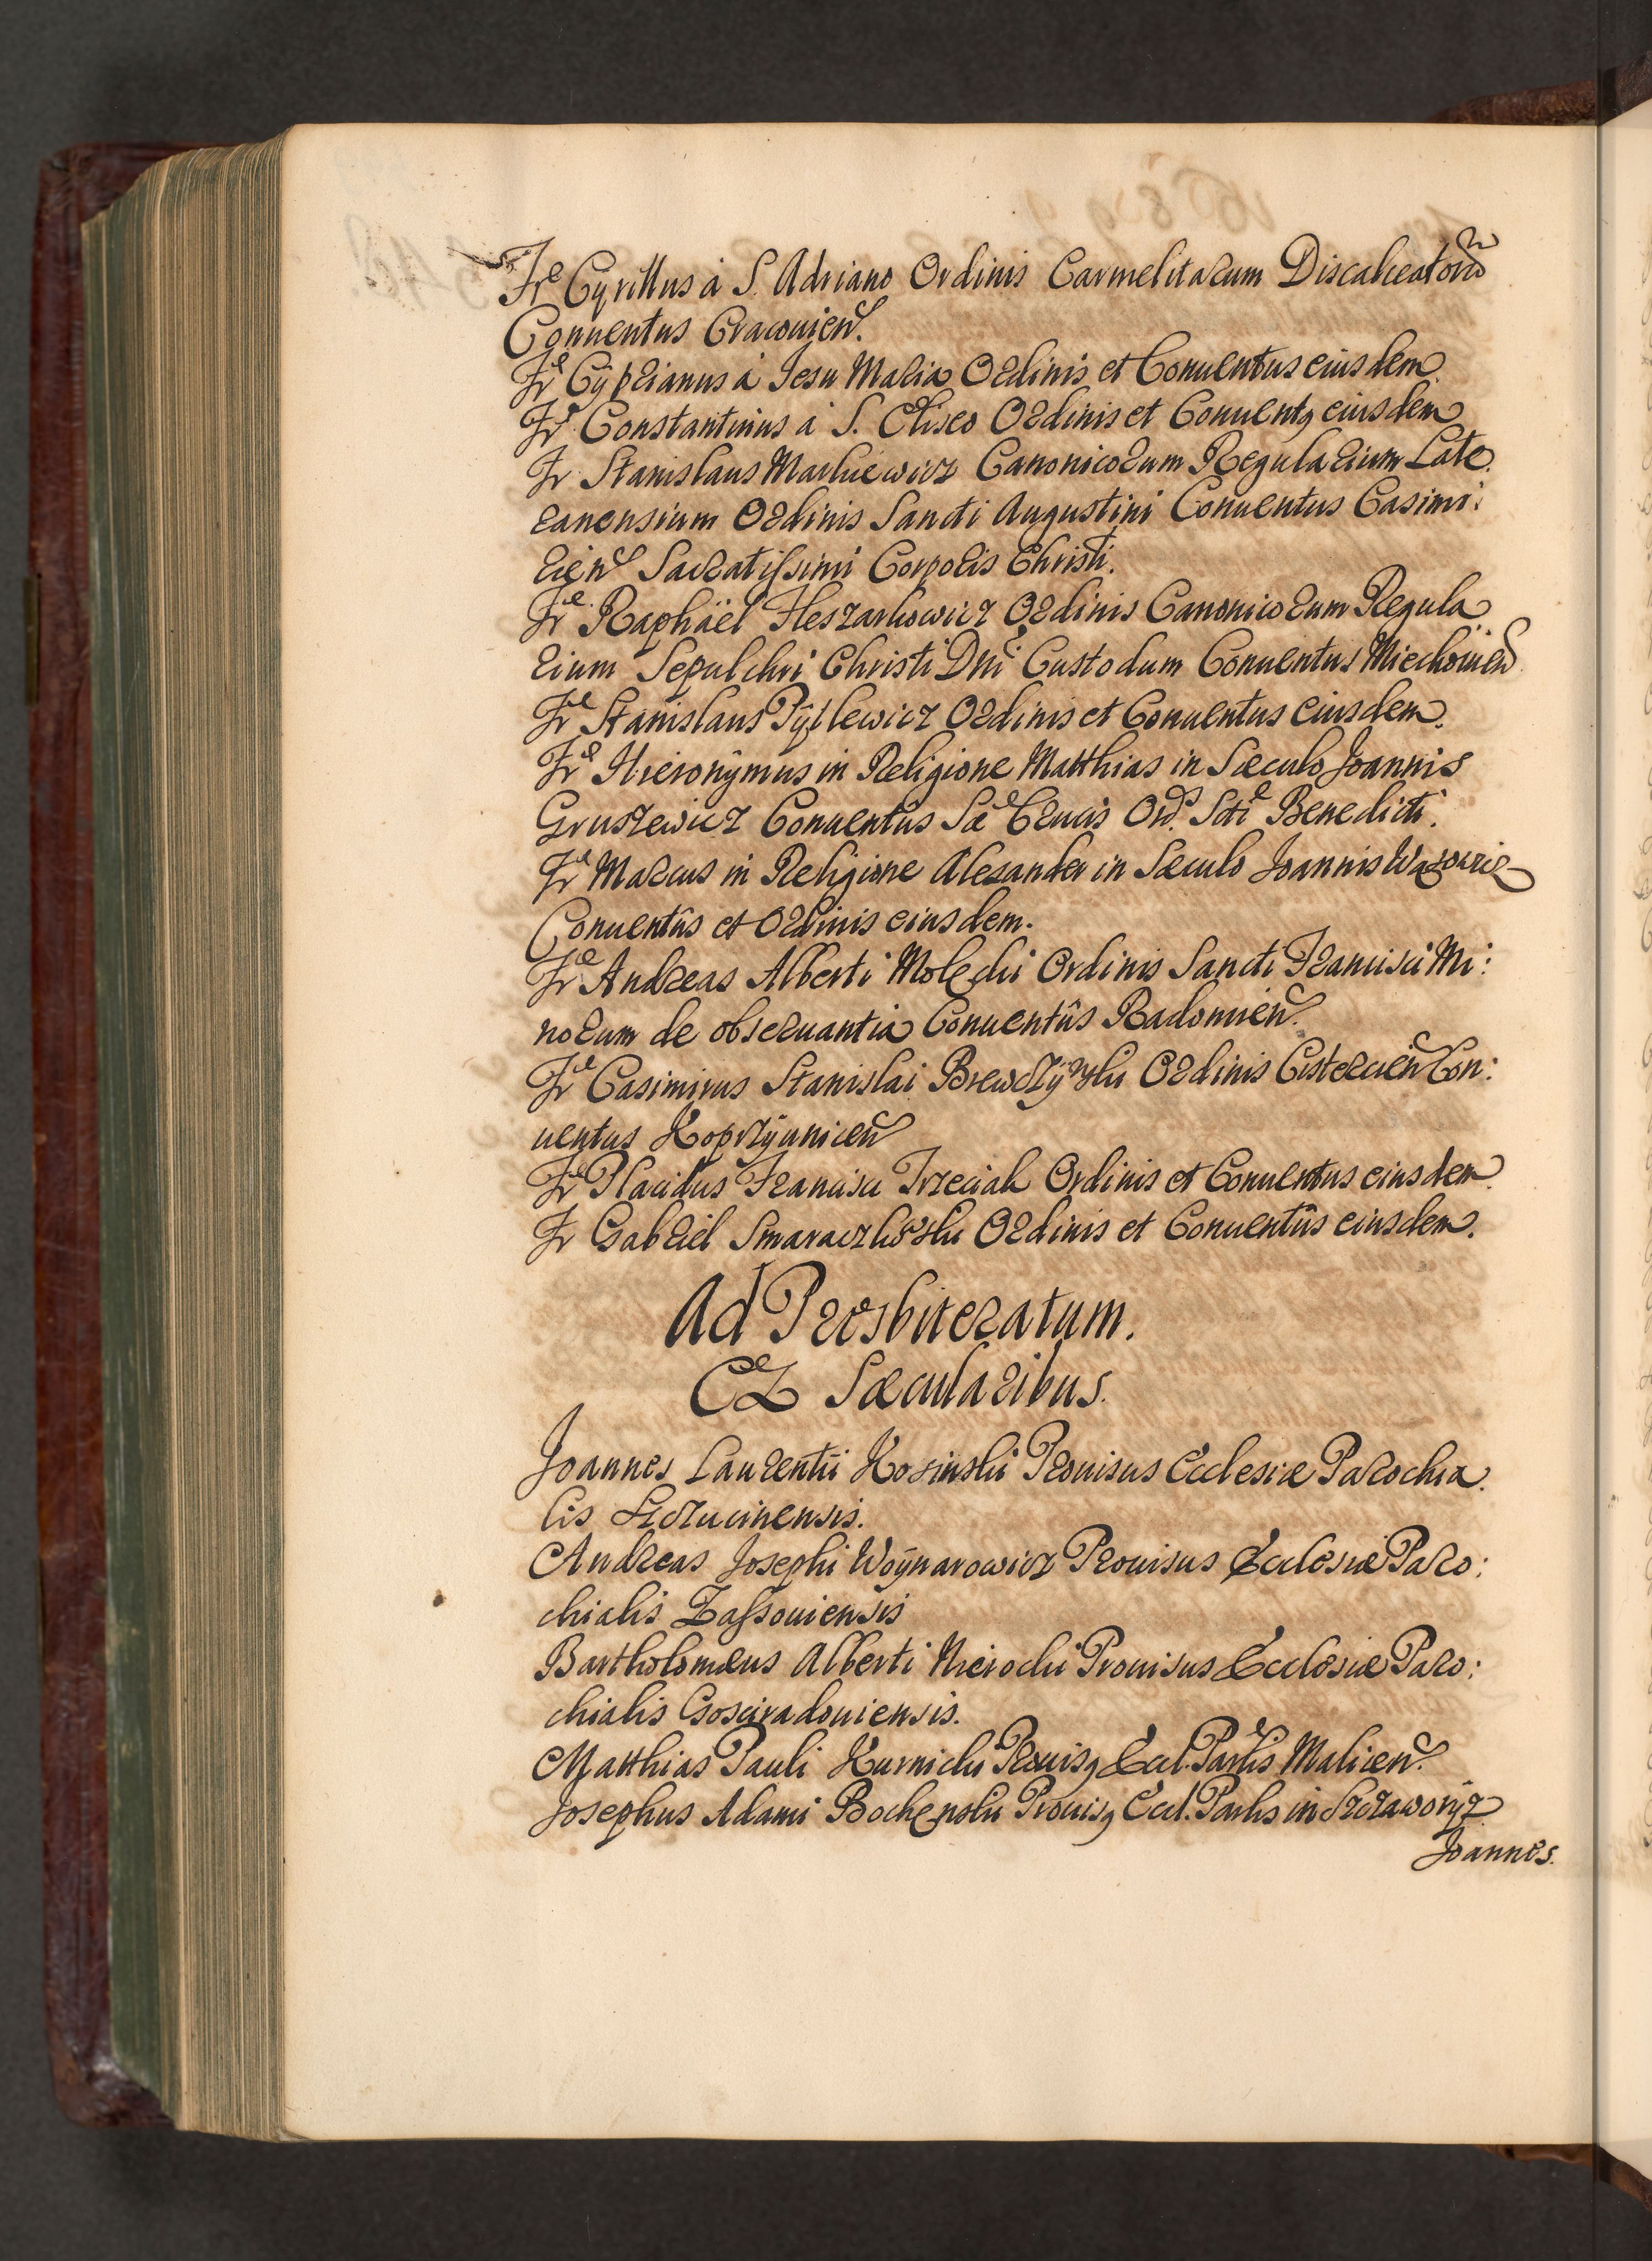 Fr Cyrillus à S. Adriano Ordinis Carmelitarum Discalceatorũ
Conuentus Cracouien.
Fr Cÿprianus à Jesu Maria Ordinis et Conuentus eiusdem
Fr Constantinus à S. Eliseo Ordinis et Conuentq eiusdem
Fr Stanislaus Markiewicz Canonicorum Regularium Late
ranensium Ordinis Sancti Augustini Conuentus Casimi:
rien Sacratissimi Corporis Christi.
Fr Raphäel Fleszarkowicz Ordinis Canonicorum Regula
rium Sepulchri Christi Dni Custodum Conuentus Miechouien
Fr Stanislaus Ordinis et Conuentus eiusdem.
Fr Hieronÿmus in Religione Matthias in Sæculo Joannis
Gruszewicz Conuentûs Sæ Crucis Ord. Scti Benedicti.
Fr Marcus in Religione Alexander in Sæculo Joannis
Conuentûs et Ordinis eiusdem.
Fr Andreas Alberti Ordinis Sancti Francisci Mi:
norum de obseruantia Conuentûs Radomien.
Fr Casimirus Stanislai Ordinis Cistercien Con:
uentus Koprzÿunicen
Fr Placidus Francisci Trzeciak Ordinis et Conuentus eiusdem.
Fr Gabriel Ordinis et Conuentûs eiusdem.
Ad Presbiteratum.
Ex Sæcularibus.
Joannes Laurentii Kosinski Prouisus Ecclesiæ Parochia
lis Szczucinensis.
Andreas Josephi Woÿnarowicz Prouisus Ecclesiæ Paro:
chialis Zassouiensis
Bartholomæus Alberti Prouisus Ecclesiæ Paro:
chialis Gosciradouiensis.
Matthias Pauli Kurnicki Prouisq Eccl. Parlis Malicen.
Josephus Adami Bochenski Prouisq Eccl. Parlis in Szczaworÿz
Joannes.